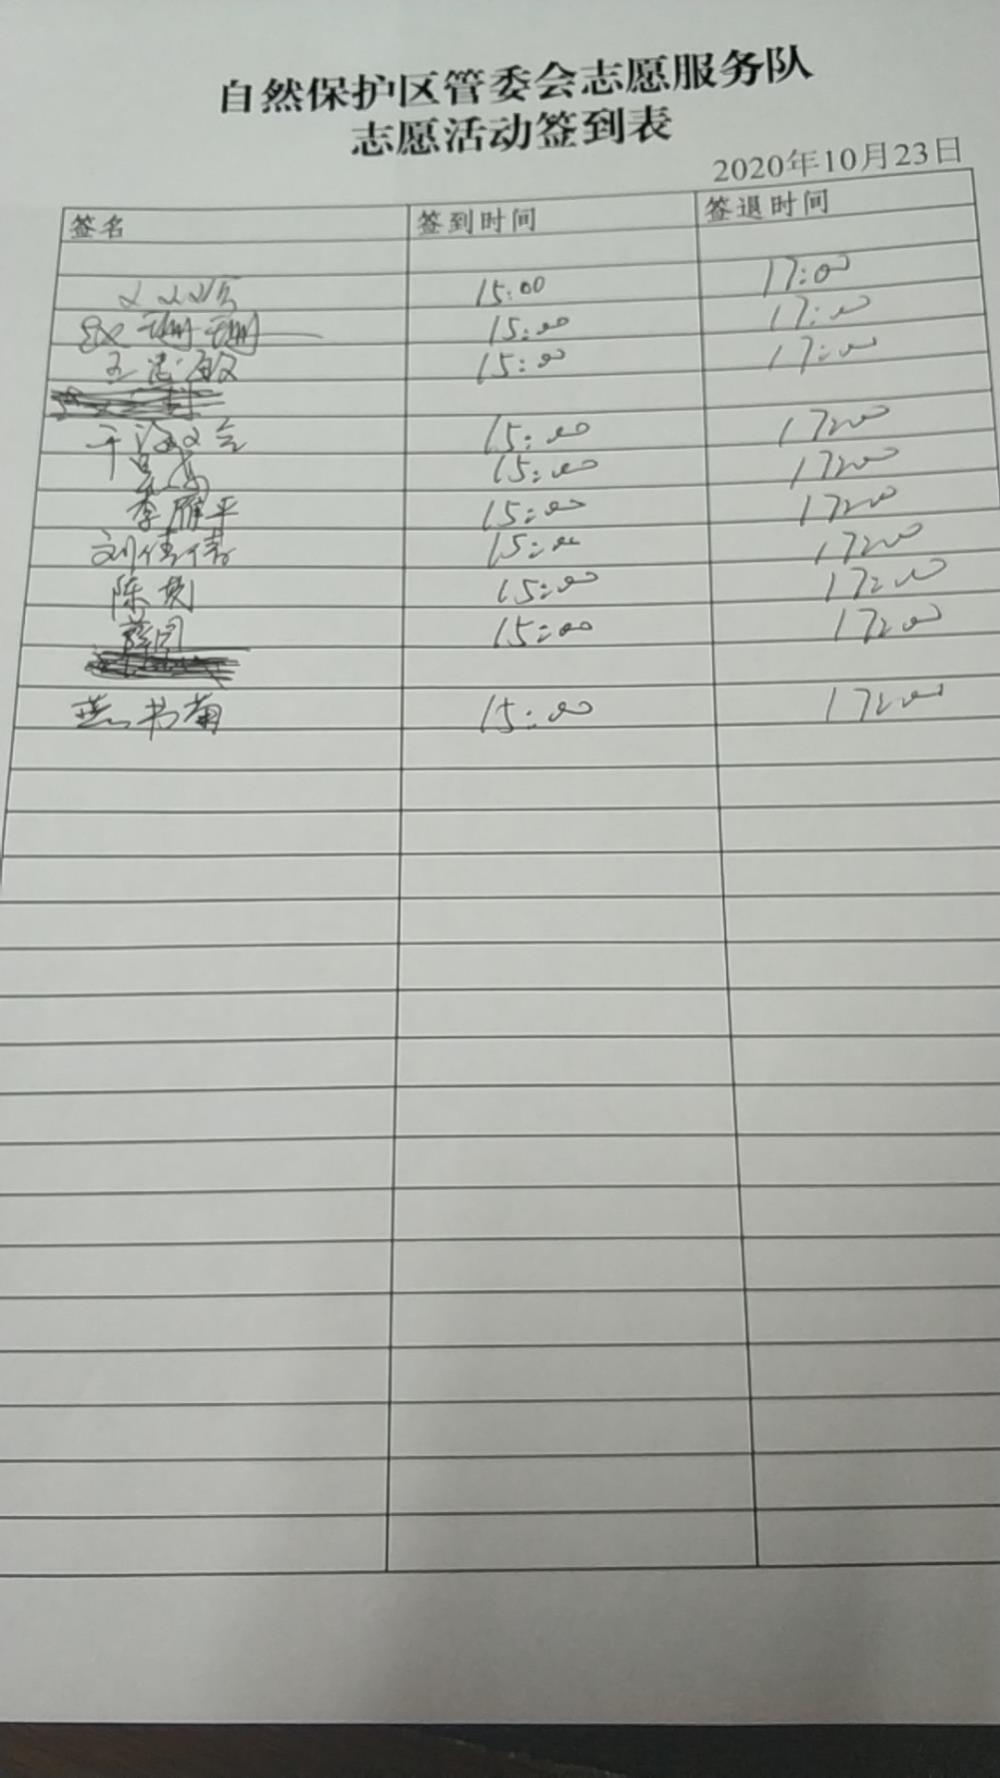 自然保护区管委会志愿服务队
志愿活动签到表
2020年10月23日
签名 签到时间 签退时间
15:00 17:00
珊珊 15:00 17:00
王 敏 15:00 17:00
于海 15:00 17:00
15:00 17:00
李雁平 15:00 17:00
刘倩倩 15:00 17:00
陈 15:00 17:00
薛 15:00 17:00
燕书菊 15:00 17:00